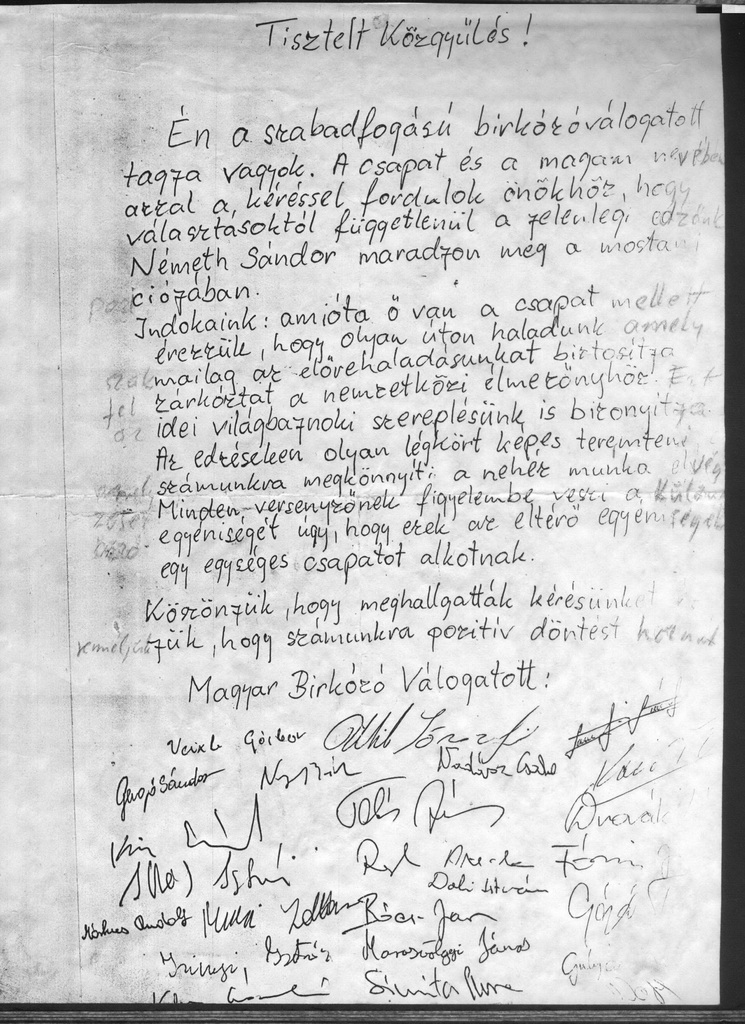 Tisztelt Közgyülés!
Én a szabadfogású birkózóválogatott
tagja vagyok. A csapat és a magam nevében
azzal a kéréssel fordulok önökhöz, hogy
választásoktól függetlenül a jelenlegi edzőnk
Németh Sándor maradjon meg a mostani
pozíciójában.
Indokaink: amióta ő van a csapat mellett
érezzük, hogy olyan úton haladunk amely
szakmailag az előrehaladásunkat biztosítja
felzárkóztat a nemzetközi élmezőnyhöz. Ezt
az idei világbajnoki szereplésünk is bizonyítja.
Az edzéseken olyan légkört képes teremteni
számunkra megkönnyíti a nehéz munka
Minden versenyzőnek figyelembe veszi a
egyéniségét úgy, hogy ezek az eltérő egyéniségek
egy egységes csapatot alkotnak.
Köszönjük, hogy meghallgatták kérésünket
reméljük, hogy számunkra pozitív döntést hoznak
Magyar Birkózó Válogatott:
Gábor
Gergő Sándor
Nádasz Csaba
Dvorák
Dali István
Zoltán
Marosvölgyi János